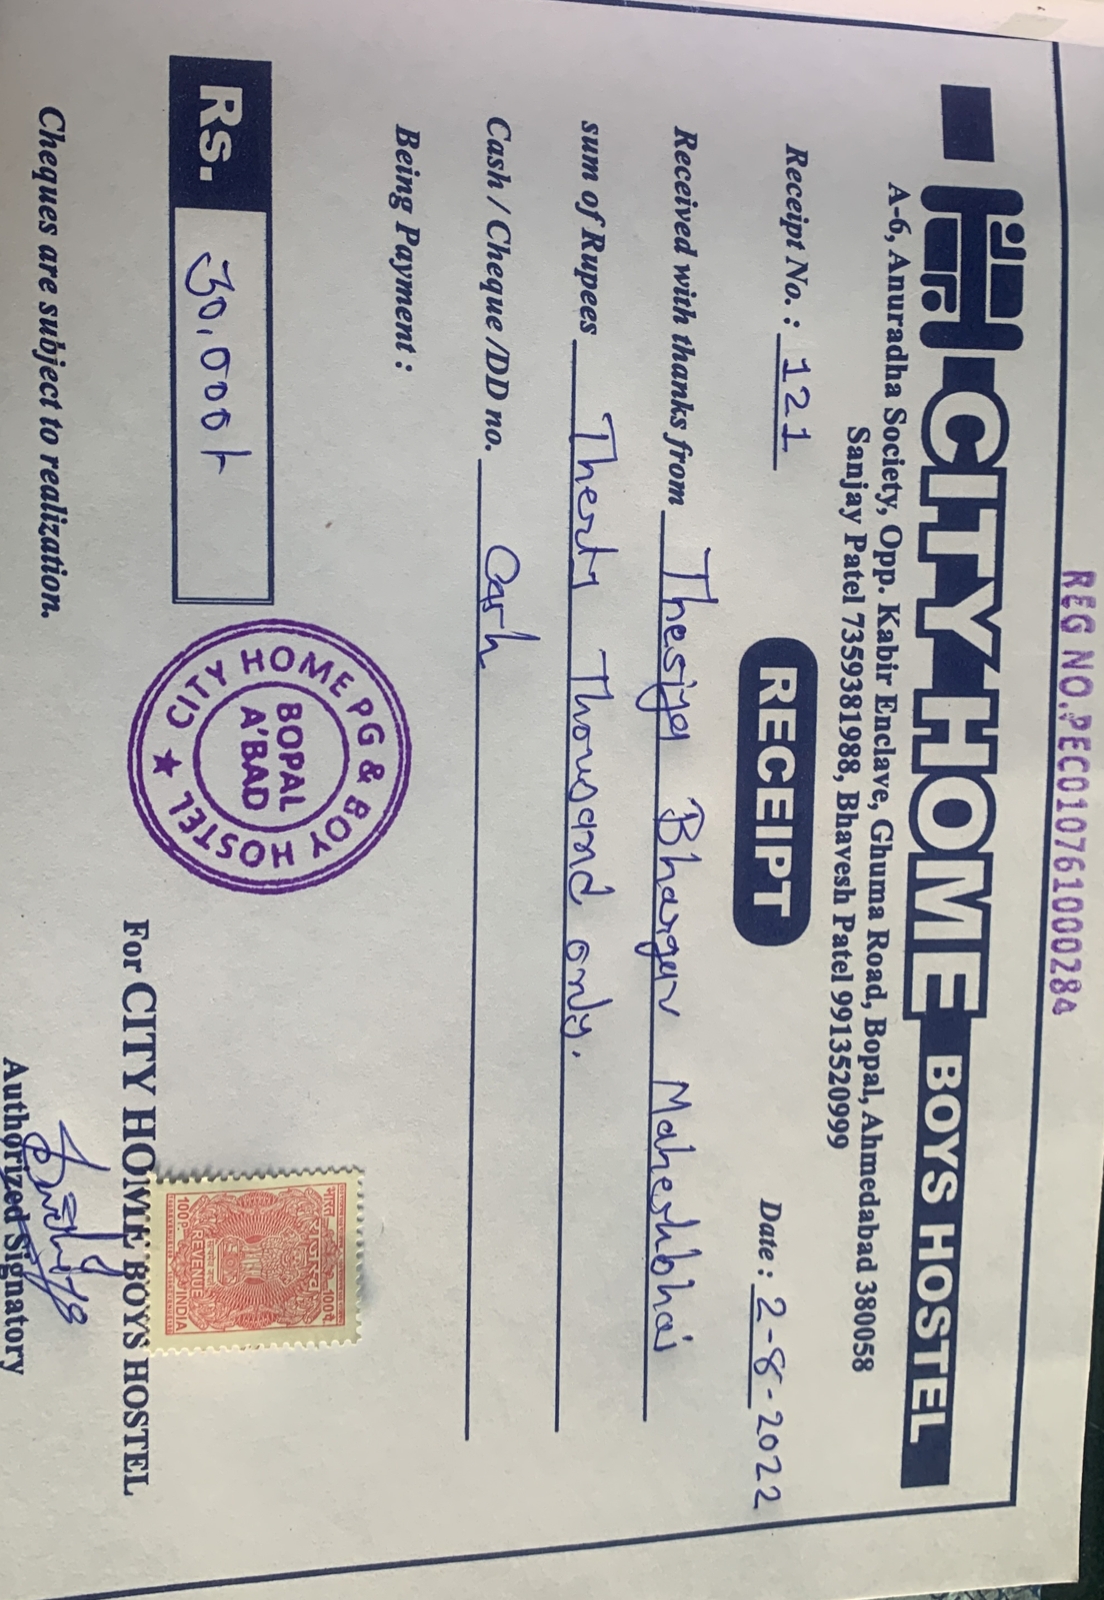 REG NO.PEC010761000284
CITY HOME BOYS HOSTEL
A-6, Anuradha Society, Opp. Kabir Enclave, Ghuma Road, Bopal, Ahmedabad 380058
Sanjay Patel 7359381988, Bhavesh Patel 9913520999
RECEIPT
Receipt No. : 121
Date : 2-8-2022
Received with thanks from Thesiya Bhargav Maheshbhai
sum of Rupees Therty Thousand only.
Cash / Cheque /DD no. Cash
Being Payment :
Rs. 30,000/-
CITY HOME PG & BOY HOSTEL
BOPAL
A'BAD
REVENUE
100P. INDIA
For CITY HOME BOYS HOSTEL
Cheques are subject to realization.
Authorized Signatory